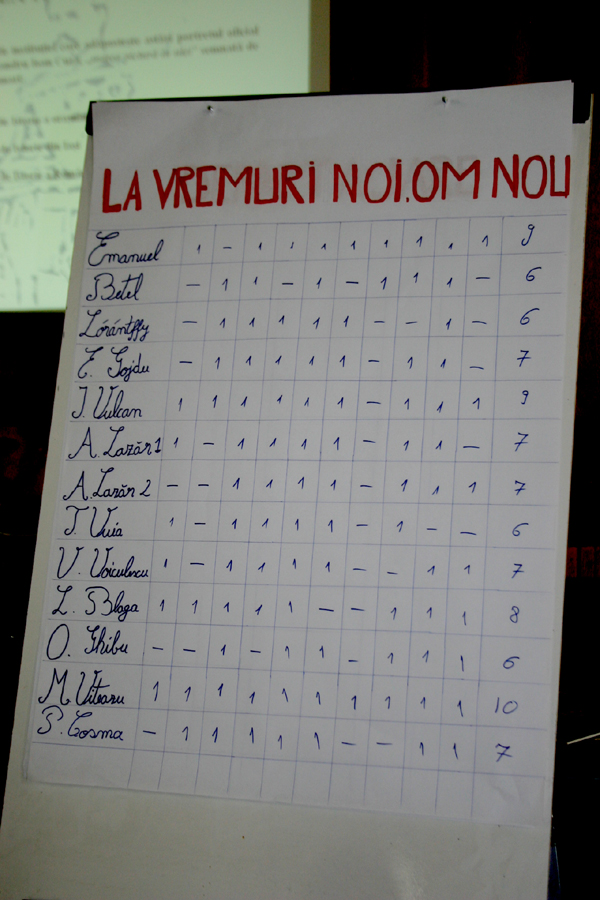 LA VREMURI NOI.OM NOU
Emanuel 1 - 1 1 1 1 1 1 1 1 9
Betel - 1 1 - 1 - 1 1 1 - 6
Lórántffy - 1 1 1 1 1 - - 1 - 6
E. Gojdu - 1 1 1 1 1 - 1 1 - 7
I. Vulcan 1 1 1 1 1 1 - 1 1 1 9
A. Lazăr 1 1 - 1 1 1 1 - 1 1 - 7
A. Lazăr 2 - - 1 1 1 1 - 1 1 1 7
T. Vuia 1 - 1 1 1 1 - 1 - - 6
V. Voiculescu 1 - 1 1 1 1 - - 1 1 7
L. Blaga 1 1 1 1 1 - - 1 1 1 8
O. Ghibu - - 1 - 1 1 - 1 1 1 6
M. Viteazu 1 1 1 1 1 1 1 1 1 1 10
P. Cosma - 1 1 1 1 1 - - 1 1 7